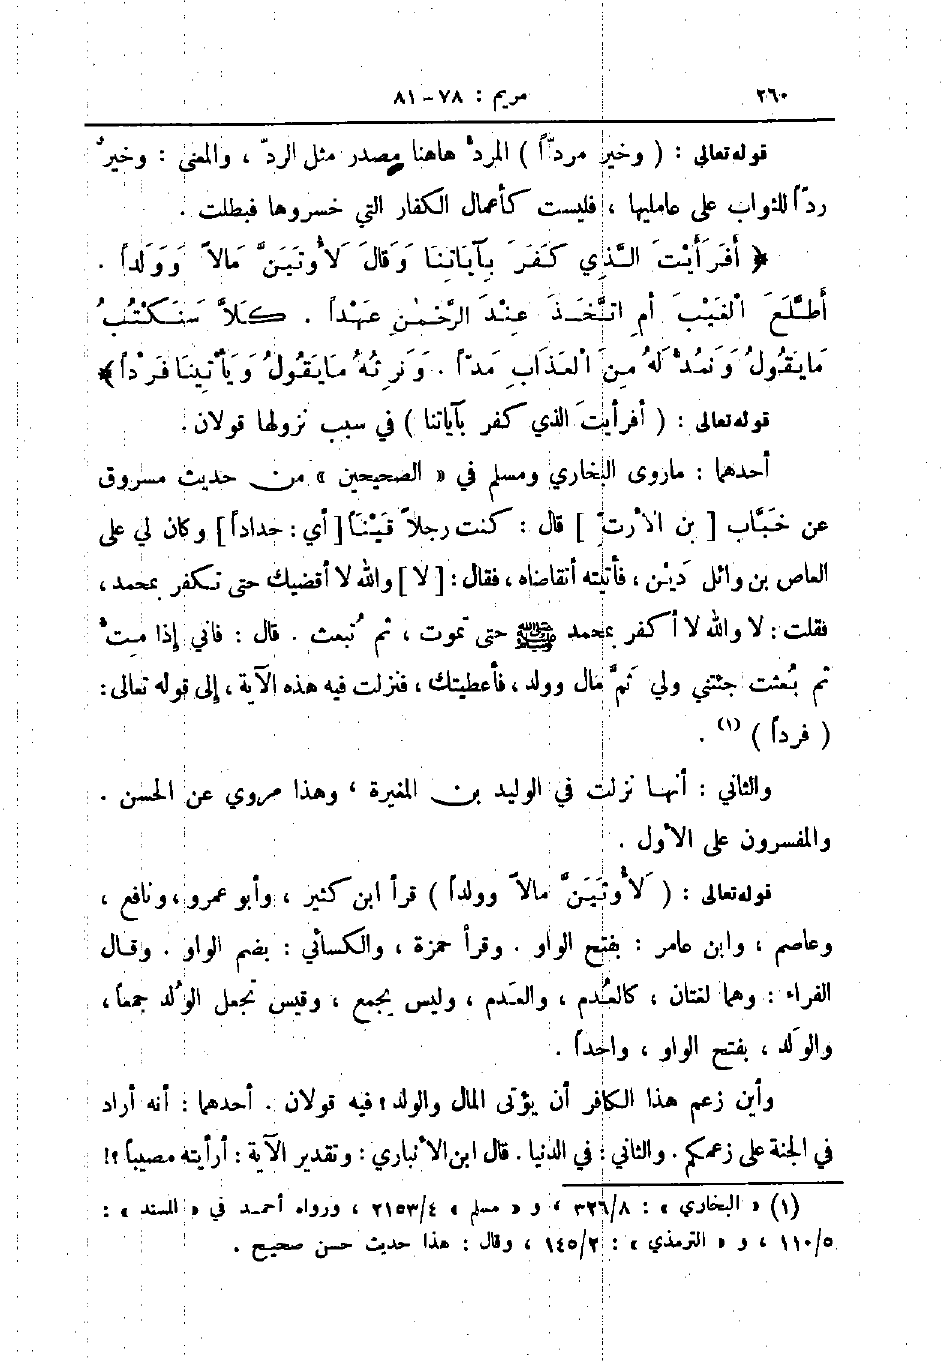 ٢٦٠ مريم : ٧٨ – ٨١
قوله تعالى : ( وخير مردّاً ) المردّ هاهنا مصدر مثل الردّ ، والمعنى : وخيرٌ
ردّاً للثواب على عامليها ، فليست كأعمال الكفار التي خسروها فبطلت .
﴿ أَفَرَأَيْتَ الَّذِي كَفَرَ بِآيَاتِنَا وَقَالَ لَأُوتَيَنَّ مَالاً وَوَلَداً .
أَطَّلَعَ الْغَيْبَ أَمِ اتَّخَذَ عِنْدَ الرَّحْمٰنِ عَهْداً . كَلَّا سَنَكْتُبُ
مَا يَقُولُ وَنَمُدُّ لَهُ مِنَ الْعَذَابِ مَدّاً . وَنَرِثُهُ مَا يَقُولُ وَيَأْتِينَا فَرْداً ﴾
قوله تعالى : ( أفرأيتَ الذي كفر بآياتنا ) في سبب نزولها قولان .
أحدهما : ماروى البخاري ومسلم في « الصحيحين » من حديث مسروق
عن خَبَّاب [ بن الأرتِّ ] قال : كنت رجلاً قَيْنَاً [ أي : حداداً ] وكان لي على
العاص بن وائل دَيْن ، فأتيته أتقاضاه ، فقال : [ لا ] والله لا أقضيك حتى تكفر بمحمد ،
فقلت : لا والله لا أكفر بمحمد ﷺ حتى تموت ، ثم تُبعث . قال : فاني إذا مِتُّ
ثم بُعثت جئتني ولي ثَمَّ مال وولد ، فأعطيتك ، فنزلت فيه هذه الآية ، إلى قوله تعالى :
( فرداً ) (١) .
والثاني : أنها نزلت في الوليد بن المغيرة ، وهذا مروي عن الحسن .
والمفسرون على الأول .
قوله تعالى : ( لَأُوتَيَنَّ مالاً وولداً ) قرأ ابن كثير ، وأبو عمرو ، ونافع ،
وعاصم ، وابن عامر : بفتح الواو . وقرأ حمزة ، والكسائي : بضم الواو . وقال
الفراء : وهما لغتان ، كالعُدم ، والعَدم ، وليس يجمع ، وقيس تجعل الوُلد جمعاً ،
والوَلد ، بفتح الواو ، واحداً .
وأين زعم هذا الكافر أن يؤتى المال والولد ؟ فيه قولان . أحدهما : أنه أراد
في الجنة على زعمكم . والثاني : في الدنيا . قال ابن الأنباري : وتقدير الآية : أرأيته مصيباً ؟!
(١) « البخاري » : ٣٢٦/٨ ، و « مسلم » ٢١٥٣/٤ ، ورواه أحمد في « المسند » :
١١٠/٥ ، و « الترمذي » : ١٤٥/٢ ، وقال : هذا حديث حسن صحيح .